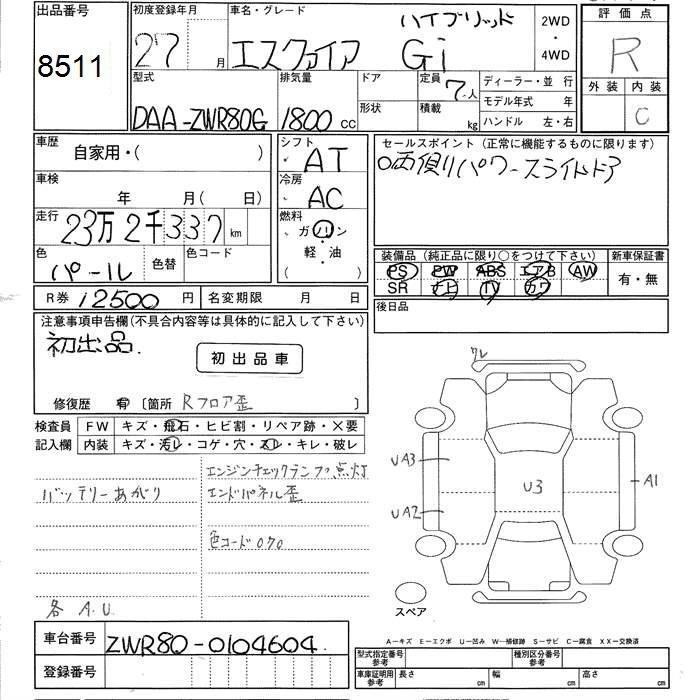 出品番号
8511
初度登録年月
27 月
車名・グレード
ハイブリッド
エスクァイア Gi
2WD
・
4WD
評価点
R
外装 内装
C
型式
DAA-ZWR80G
排気量
1800 CC
ドア
形状
定員
7人
積載
kg
ディーラー・並 行
モデル年式 年
ハンドル 左・右
車歴
自家用・( )
車検
年 月( 日)
走行
23万2千337 km
色
パール
色替
色コード
シフト
AT
冷房
AC
燃料
ガソリン
・
軽・油
( )
セールスポイント (正常に機能するものに限ります)
○両側パワースライドドア
装備品 (純正品に限り○をつけて下さい)
PS PW ABS エアB AW
SR ナビ TV カワ
新車保証書
有・無
後日品
R券 12500 円
名変期限 月 日
注意事項申告欄(不具合内容等は具体的に記入して下さい)
初出品.
初出品車
修復歴 有 〔箇所 Rフロア歪 〕
検査員
記入欄
FW キズ・飛石・ヒビ割・リペア跡・X要
内装 キズ・汚レ・コゲ・穴・スレ・キレ・破レ
エンジンチェックランプ 点灯
バッテリーあがり
エンドパネル歪
色コード070
各 A.U
ワレ
UA3
UA2
U3
A1
スペア
車台番号 ZWR80-0104604
登録番号
A－キズ E－エクボ U－凹み W－補修跡 S－サビ C－腐食 XX－交換済
型式指定番号
参考
種別区分番号
参考
車庫証明用
参考
長さ cm
幅 cm
高さ cm